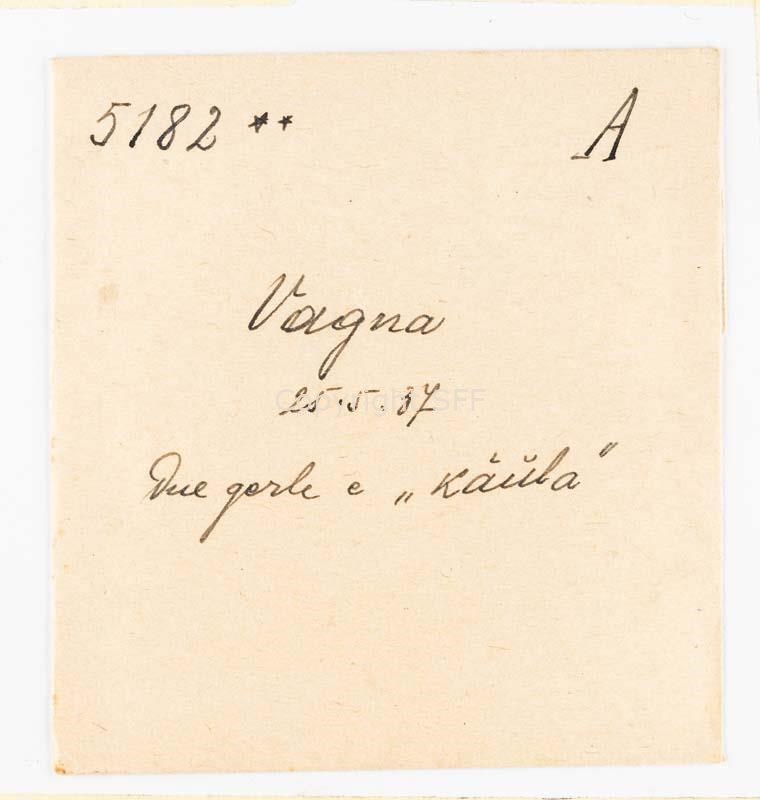 5182 ** A
Vagna
25.5.37
Due gerle e „käŭla"
Copyright SFF